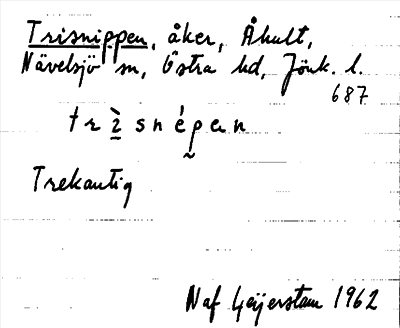 Trisnippen, åker, Åhult,
Nävelsjö sn, Östra hd, Jönk. l.
687
trìsnépan
Trekantig
Naf Geijerstam 1962